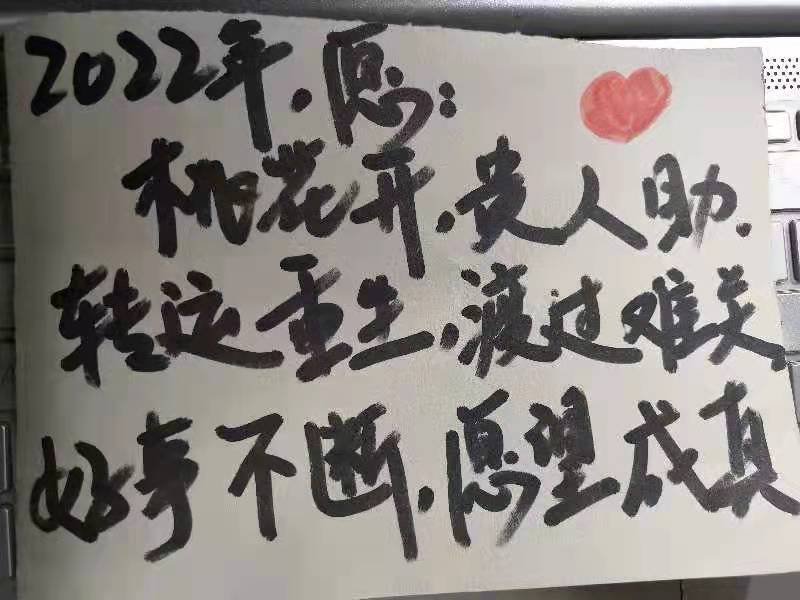 2022年，愿：
桃花开，贵人助，
转运重生，渡过难关，
好事不断，愿望成真